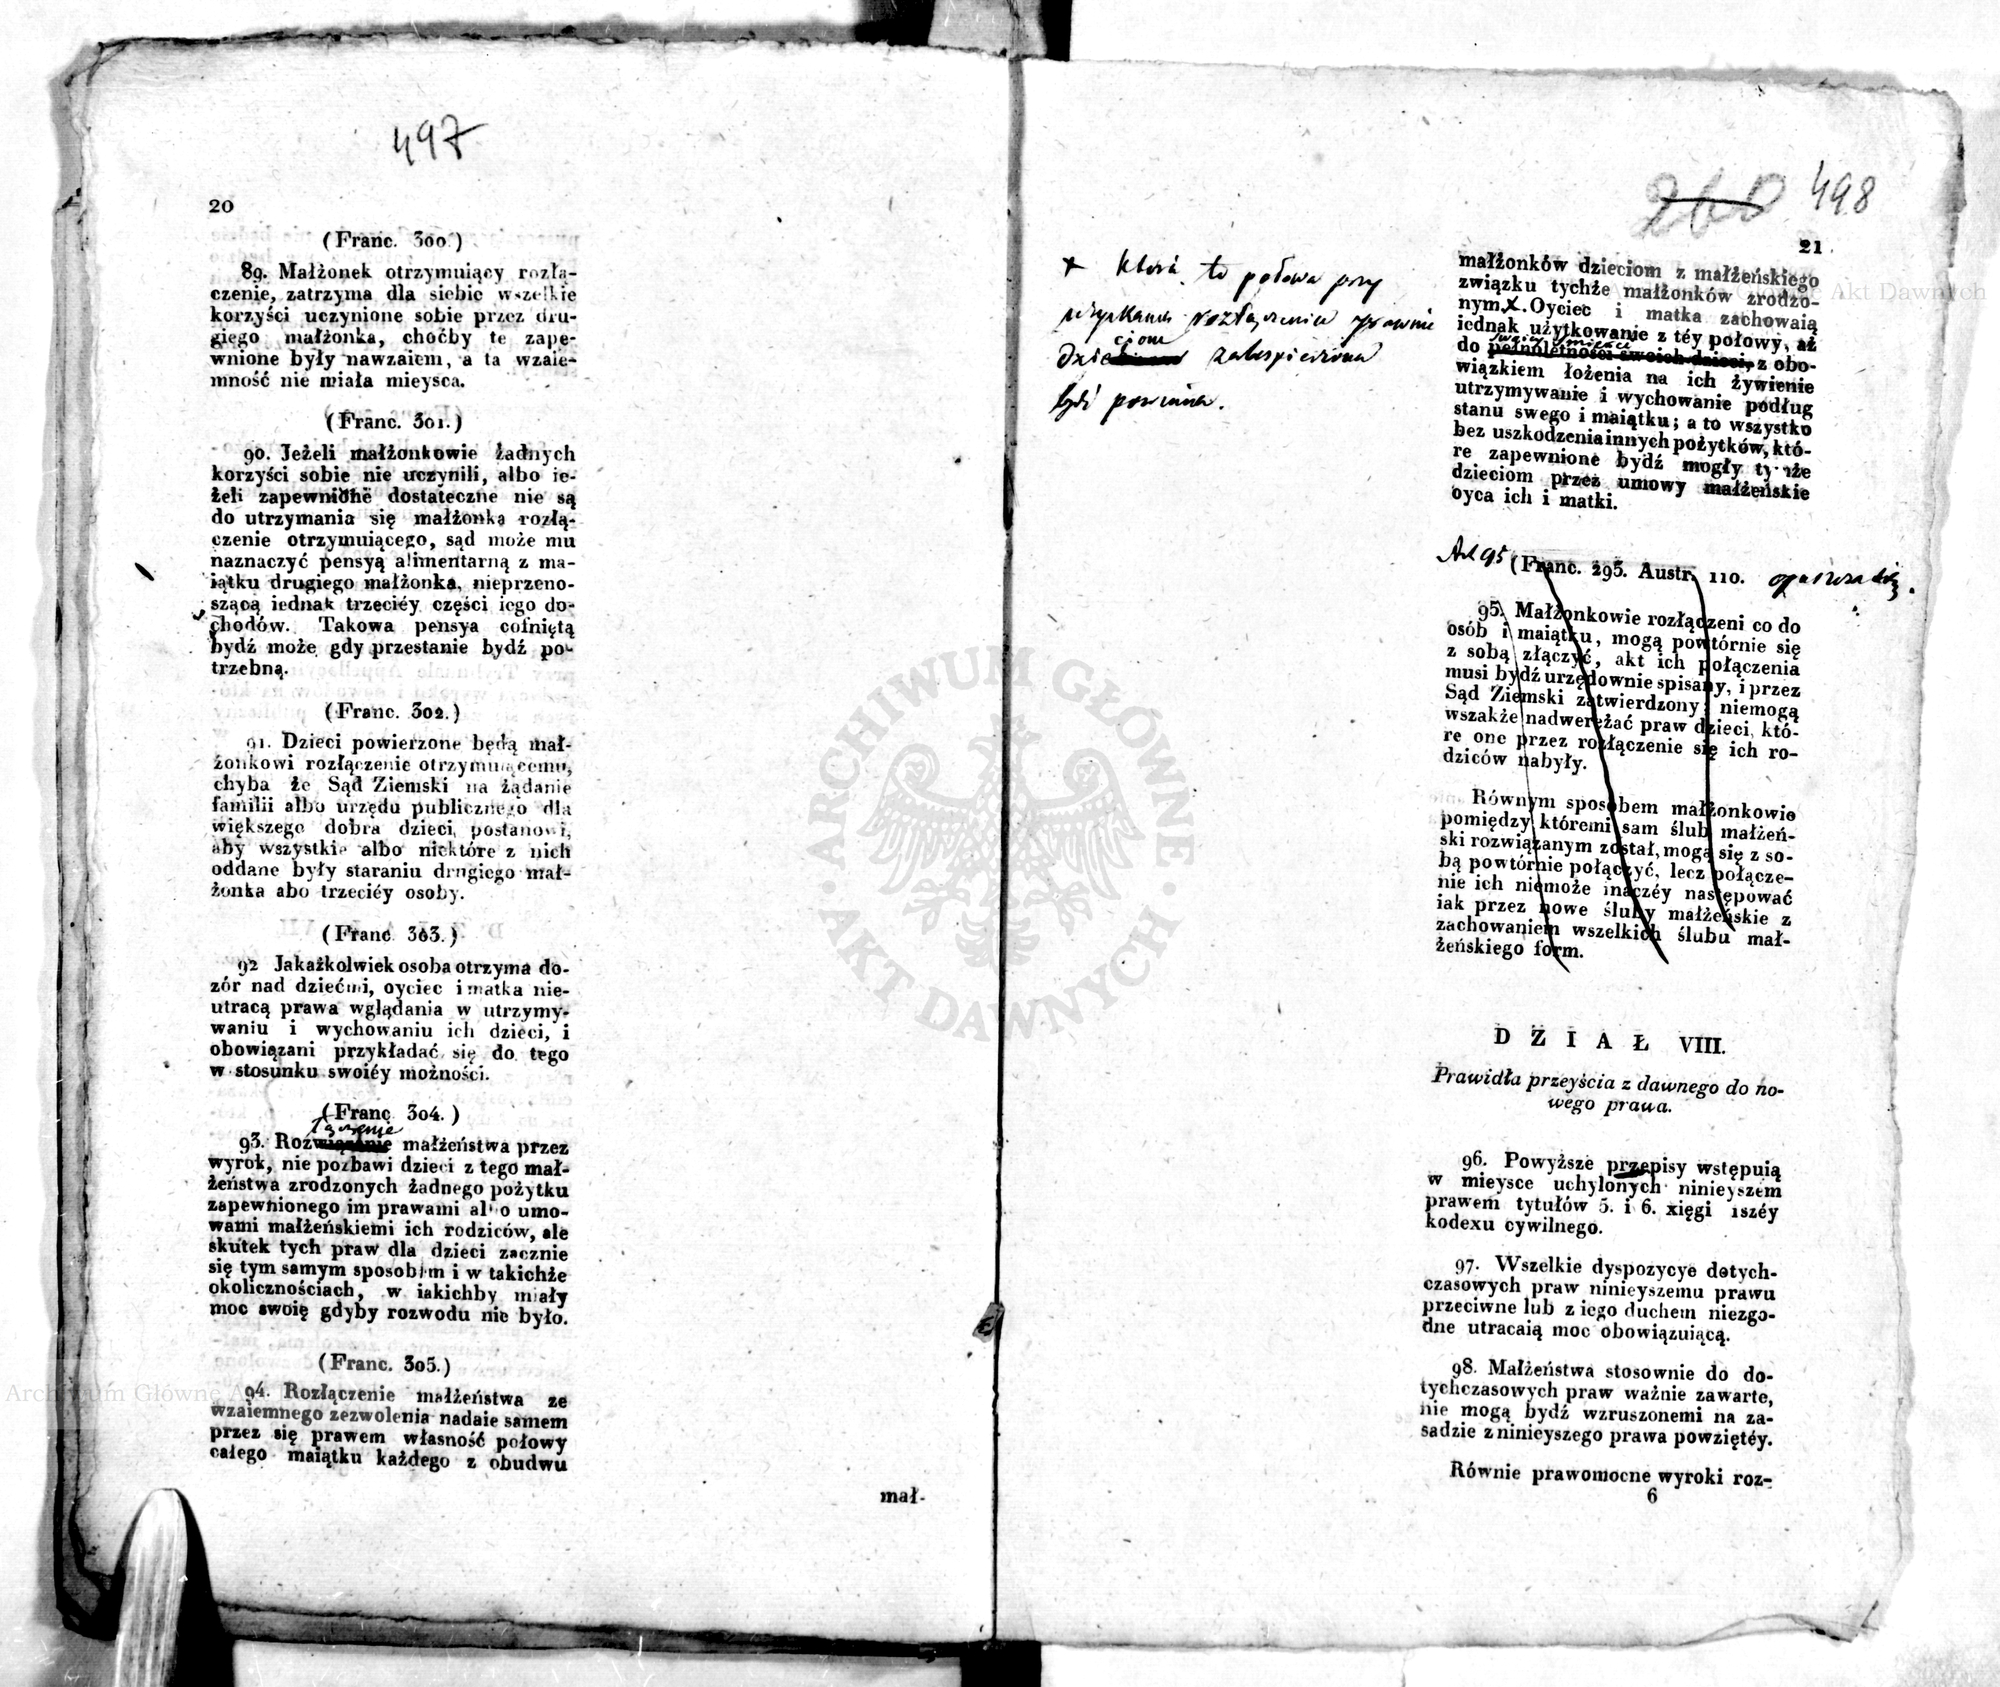 497
20
(Franc. 300.)
89. Małżonek otrzymuiący rozłą-
czenie, zatrzyma dla siebie wszelkie
korzyści uczynione sobie przez dru-
giego małżonka, choćby te zape-
wnione były nawzaiem, a ta wzaie-
mność nie miała mieysca.
(Franc. 301.)
90. Jeżeli małżonkowie żadnych
korzyści sobie nie uczynili, albo ie-
żeli zapewnione dostateczne nie są
do utrzymania się małżonka rozłą-
czenie otrzymuiącego, sąd może mu
naznaczyć pensyą alimentarną z ma-
iątku drugiego małżonka, nieprzeno-
szącą iednak trzeciéy części iego do-
chodów. Takowa pensya cofniętą
bydź może gdy przestanie bydź po-
trzebną.
(Franc. 302.)
91. Dzieci powierzone będą mał-
żonkowi rozłączenie otrzymuiącemu,
chyba że Sąd Ziemski na żądanie
familii albo urzędu publicznego dla
większego dobra dzieci postanowi,
aby wszystkie albo niektóre z nich
oddane były staraniu drugiego mał-
żonka abo trzeciéy osoby.
(Franc. 303.)
92 Jakażkolwiek osoba otrzyma do-
zór nad dziećmi, oyciec i matka nie-
utracą prawa wglądania w utrzymy-
waniu i wychowaniu ich dzieci, i
obowiązani przykładać się do tego
w stosunku swoiéy możności.
(Franc. 304.)
łączenie
93. Rozwiązanie małżeństwa przez
wyrok, nie pozbawi dzieci z tego mał-
żeństwa zrodzonych żadnego pożytku
zapewnionego im prawami albo umo-
wami małżeńskiemi ich rodziców, ale
skutek tych praw dla dzieci zacznie
się tym samym sposobem i w takichże
okolicznościach, w iakichby miały
moc swoię gdyby rozwodu nie było.
(Franc. 305.)
94. Rozłączenie małżeństwa ze
wzaiemnego zezwolenia nadaie samem
przez się prawem własność połowy
całego maiątku każdego z obudwu
mał-
260 498
21
+ która to połowa przy
uzyskaniu rozłączenia prawnie
ciom
dzieciom zabespieczona
bydź powinna.
małżonków dzieciom z małżeńskiego
związku tychże małżonków zrodzo-
nym. Oyciec i matka zachowaią
iednak użytkowanie z téy połowy, aż
do pełnoletności swoich dzieci, z obo-
wiązkiem łożenia na ich żywienie
utrzymywanie i wychowanie podług
stanu swego i maiątku; a to wszystko
bez uszkodzenia innych pożytków, któ-
re zapewnione bydź mogły tymże
dzieciom przez umowy małżeńskie
oyca ich i matki.
Art 95 (Franc. 295. Austr. 110. opuszcza się.
95. Małżonkowie rozłączeni co do
osób i maiątku, mogą powtórnie się
z sobą złączyć, akt ich połączenia
musi bydź urzędownie spisany, i przez
Sąd Ziemski zatwierdzony; niemogą
wszakże nadwerężać praw dzieci, któ-
re one przez rozłączenie się ich ro-
dziców nabyły.
Równym sposobem małżonkowie
pomiędzy któremi sam ślub małżeń-
ski rozwiązanym został, mogą się z so-
bą powtórnie połączyć, lecz połącze-
nie ich niemoże inaczéy następować
iak przez nowe śluby małżeńskie z
zachowaniem wszelkich ślubu mał-
żeńskiego form.
DZIAŁ VIII.
Prawidła przeyścia z dawnego do no-
wego prawa.
96. Powyższe przepisy wstępuią
w mieysce uchylonych ninieyszem
prawem tytułów 5. i 6. xięgi 1széy
kodexu cywilnego.
97. Wszelkie dyspozycye dotych-
czasowych praw ninieyszemu prawu
przeciwne lub z iego duchem niezgo-
dne utracaią moc obowiązuiącą.
98. Małżeństwa stosownie do do-
tychczasowych praw ważnie zawarte,
nie mogą bydź wzruszonemi na za-
sadzie z ninieyszego prawa powziętéy.
Równie prawomocne wyroki roz-
6
ARCHIWUM GŁÓWNE
AKT DAWNYCH